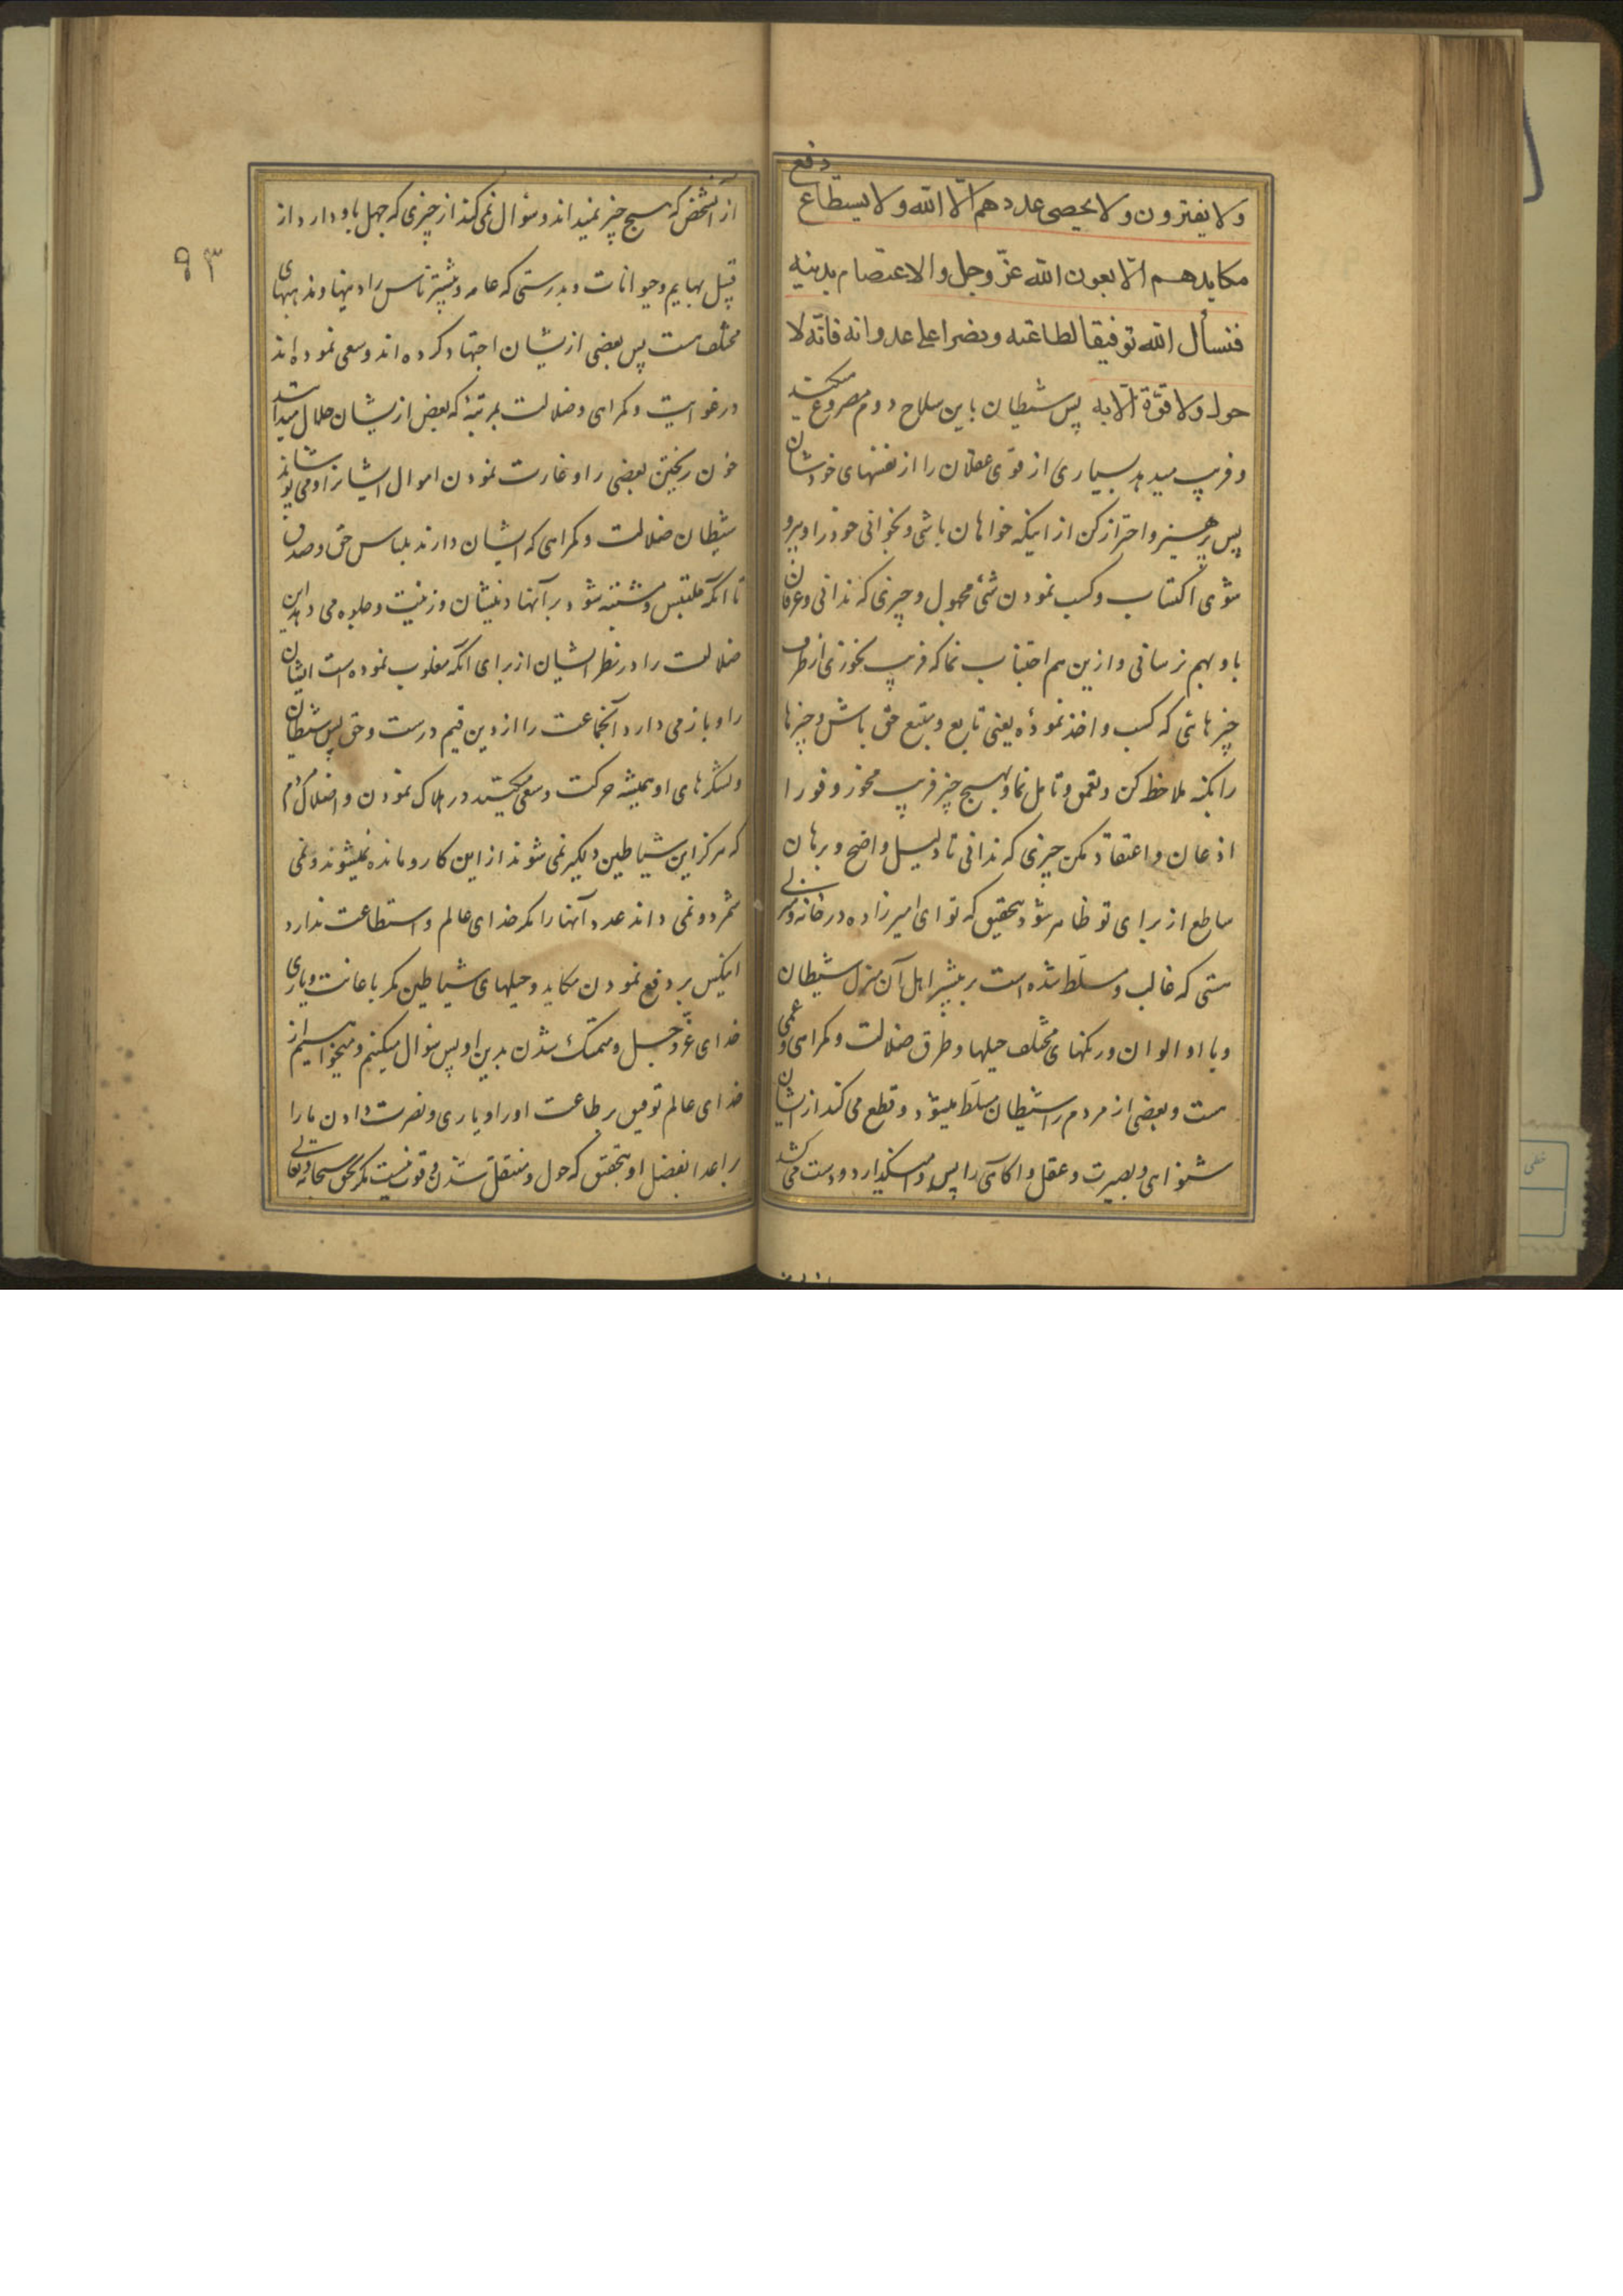 دفع
ولا یفترون ولا یحصی عددهم الّا الله ولا یستطاع
مکایدهم الّا بعون الله عزّ وجل والاعتصام بدینه
فنسأل الله توفیقا لطاعته ونصرا علی عدوانه فانّه لا
حول ولا قوّة الّا به پس شیطان باین سلاح دوم مصروع میکند
و فریب میدهد بسیاری از قوی عقلان را از نفسهای خودشان
پس پرهیز و احتراز کن از اینکه خواهان باشی و بخوانی خود را و پیرو
شوی اکتساب و کسب نمودن شیٔ مجهول و چیزی که ندانی و عرفان
باو بهم نرسانی و ازین هم اجتناب نما که فریب نخوری از طرف
چیزهائی که کسب و اخذ نمودهٔ یعنی تابع و متبع حق باش و چیزها
را بکنه ملاحظه کن و تعمق و تامل نما و بهیچ چیز فریب مخور و فورا
اذعان و اعتقاد مکن چیزی که ندانی تا دلیل واضح و برهان
ساطع از برای تو ظاهر شود بتحقیق که تو ای امیرزاده در خانه و منزلی
هستی که غالب و مسلّط شده است بر بیشتر اهل آن منزل شیطان
و با او الوان و رنکهای مختلف حیلها و طرق ضلالت و کمراهی و عمی
هست و بعضی از مردم را شیطان مسلّط میشود و قطع می کند از ایشان
شنوائی و بصیرت و عقل و اکاهی را پس وامیکذارد و دست می کشد
از آنشخص که هیچ چیز نمیداند و سؤال نمی کند از چیزی که جهل باو دارد از
قبیل بهایم و حیوانات و بدرستی که عامه و بیشتر ناس را دینها و مذهبهای
مختلف هست پس بعضی از یشان اجتهاد کرده اند و سعی نموده اند
در غوایت و کمراهی و ضلالت بمرتبهٔ که بعضی از یشان حلال میدانند
خون ریختن بعضی را و غارت نمودن اموال ایشانرا و می پوشاند
شیطان ضلالت و کمراهی که ایشان دارند بلباس حق و صدق
تا آنکه ملتبس و مشتبه شود بر آنها دینشان و زینت و جلوه می دهد این
ضلالت را در نظر ایشان از برای آنکه مغلوب نموده است ایشان
را و باز می دارد آنجماعت را از دین قیم درست و حق پس شیطان
و لشکرهای او همیشه حرکت و سعی میکنند در هلاک نمودن و اضلال مردم
که هرکز این شیاطین دلکیر نمی شوند از این کار و مانده نمیشوند و نمی
شمرد و نمی داند عدد آنها را مکر خدای عالم و استطاعت ندارد
اینکس بر دفع نمودن مکاید و حیلهای شیاطین مکر باعانت و یاری
خدای عزّ و جل و متمسّک شدن بدین او پس سؤال میکنیم و میخواهیم از
خدای عالم توفیق بر طاعت او را و یاری و نصرت دادن ما را
بر اعدا بفضل او بتحقیق که حول و منتقل شدن و قوت نیست مکر بحق سبحانه و تعالی
۹۳
خطی